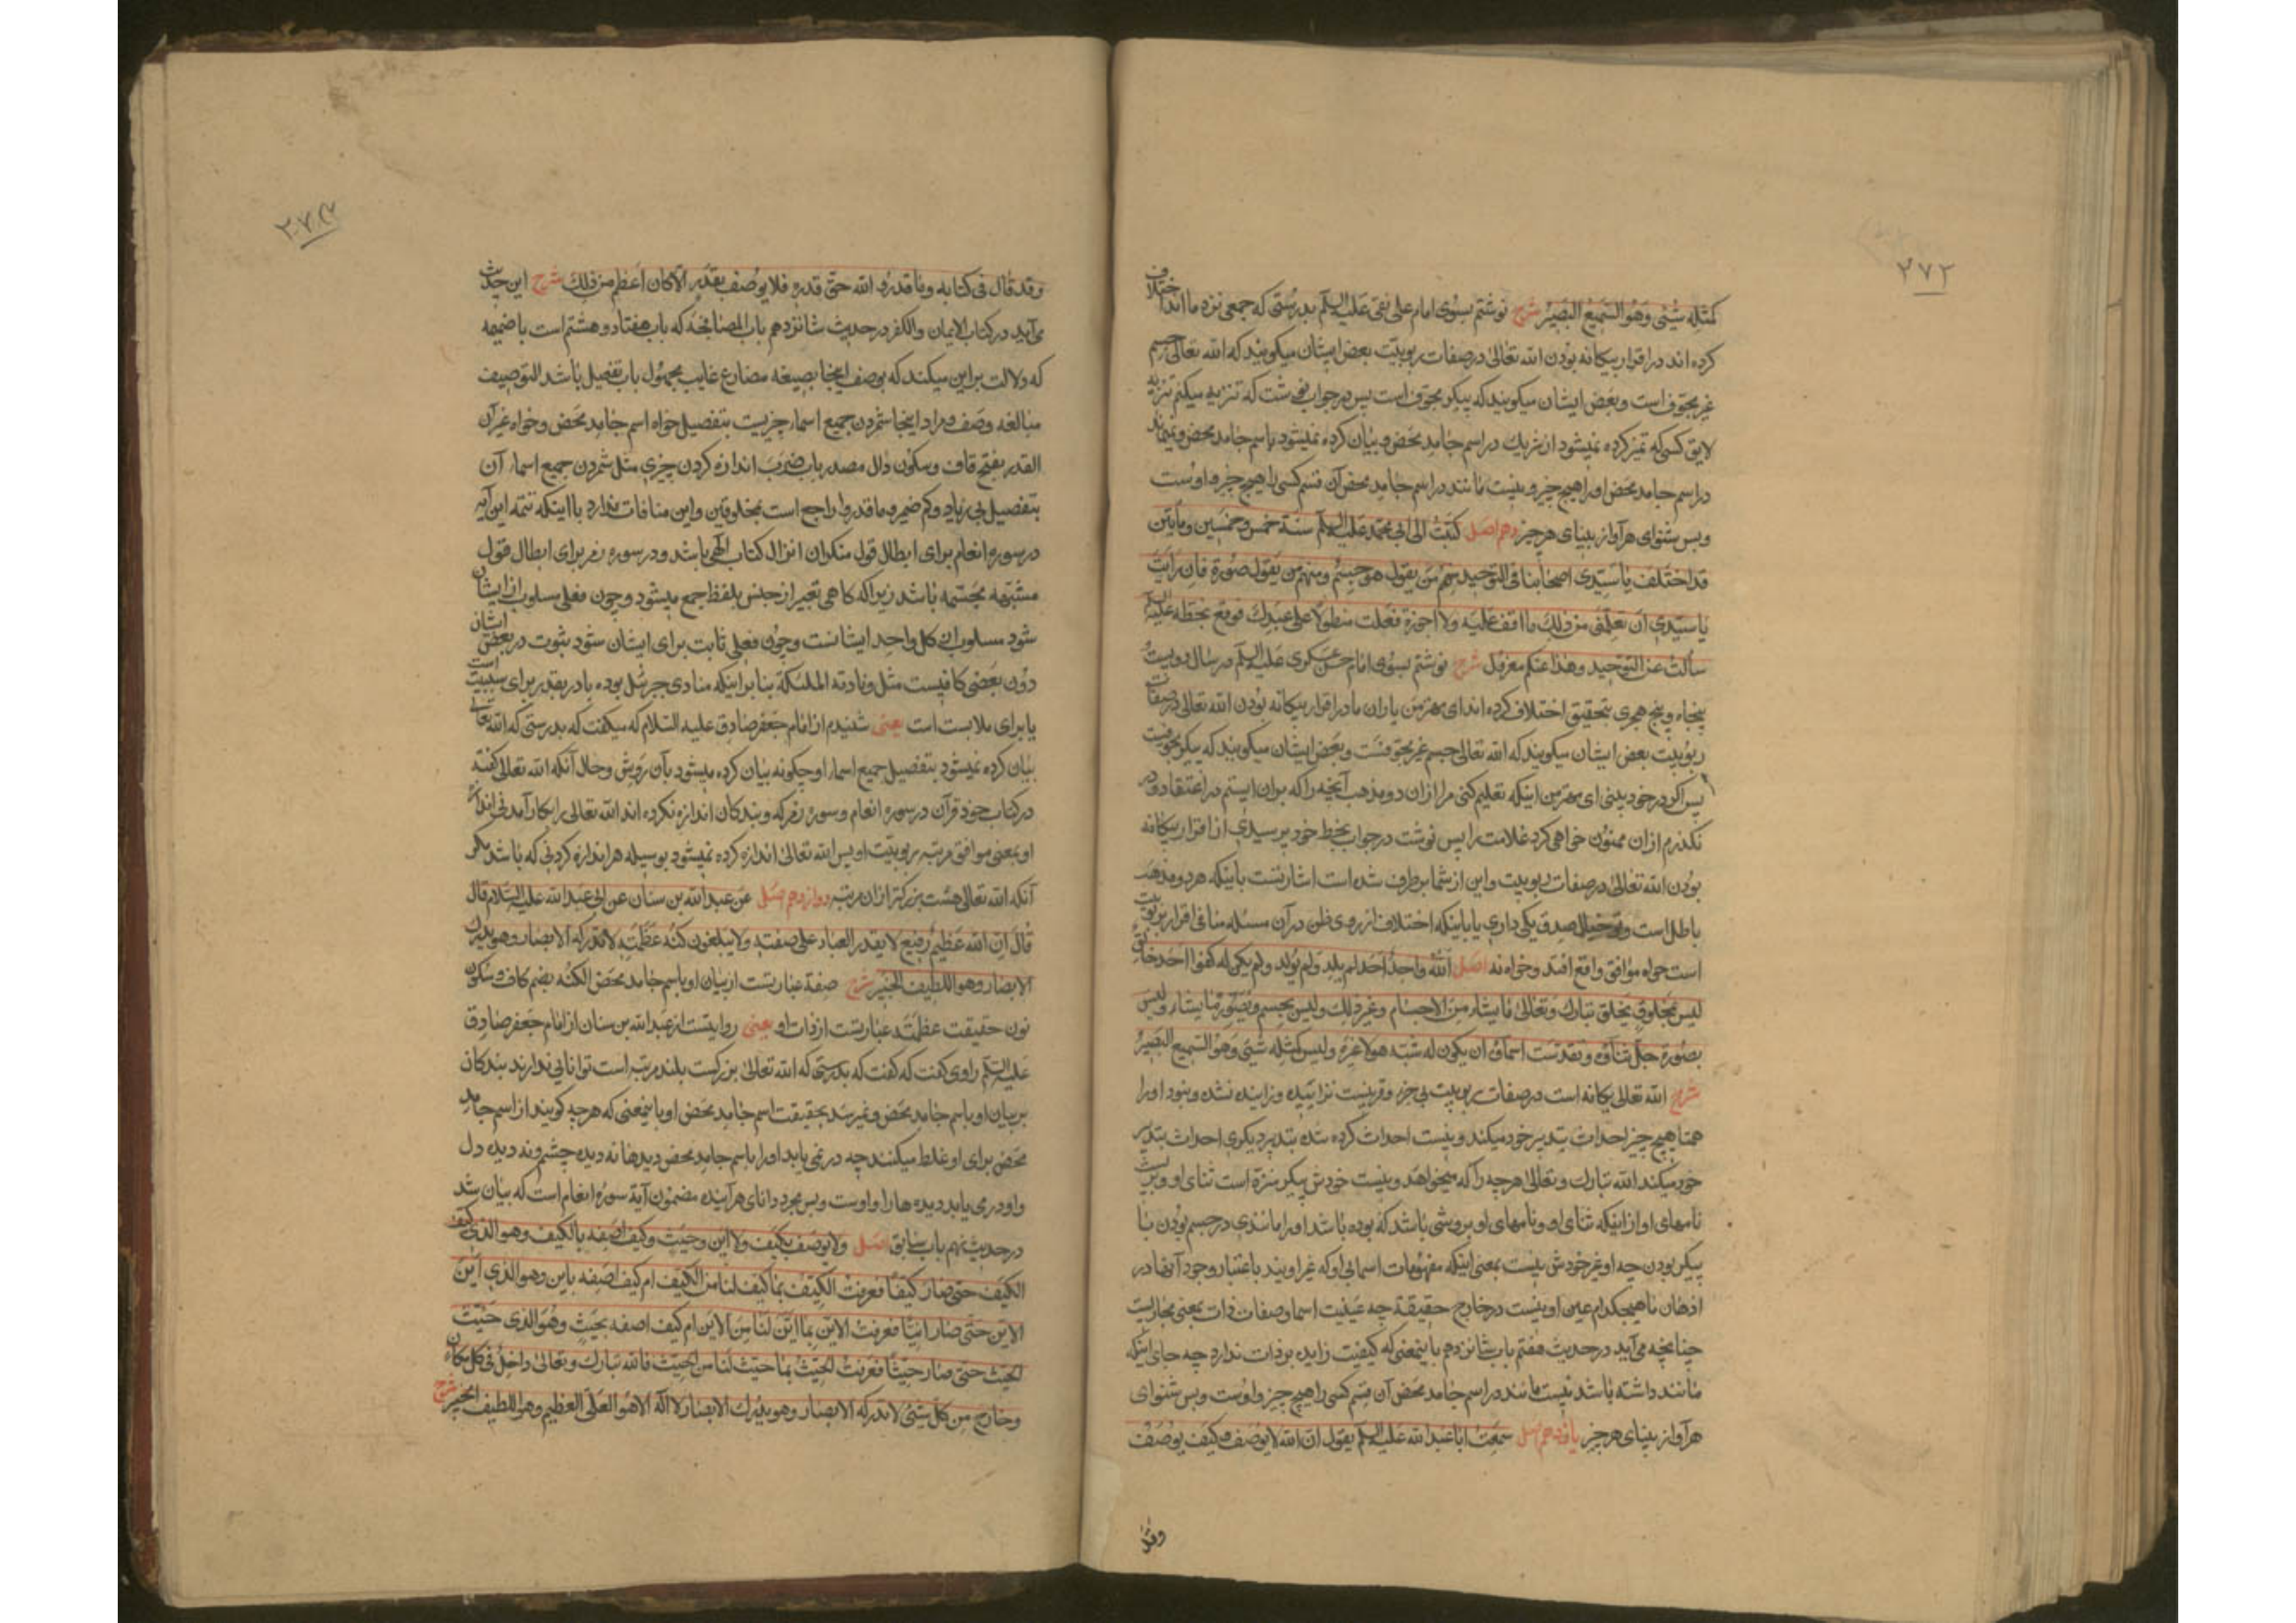 ۲۷۲
كمثله شئ وهو السميع البصير شرح نوشتم بسوی امام علی نقی علیه السلم بدرستی که جمعی نزد ما اند اختلاف
کرده اند در اقرار بیکانه بودن الله تعالی در صفات ربوبیت بعض ایشان میکویند که الله تعالی جسم
غیر مجوف است و بعض ایشان میکویند که پیکر مجوف است پس در جواب نوشت که تنزیه میکنم تنزیه
لایق کسی که تمیز کرده نمیشود از شریک در اسم جامد محض و بیان کرده نمیشود باسم جامد محض و نمیماند
در اسم جامد محض او را هیچ چیز و نیست مانند در اسم جامد محض آن قسم کسی را هیچ چیز و اوست
و بس شنوای هر آواز بینای هر چیز دهم اصل كتبت الى ابى محمد عليه السلم سنة خمس وخمسين ومأيتين
قد اختلف يا سيدى اصحابنا فى التوحيد منهم من يقول هو جسم ومنهم من يقول صورة فان رايت
يا سيدى ان تعلمنى من ذلك ما اقف عليه ولا اجوزه فعلت متطولا على عبدك فوقع بخطه عليه السلم
سألت عن التوحيد وهذا عنكم معزول شرح نوشتم بسوی امام حسن عسکری علیه السلم در سال دویست
پنجاه و پنج هجری بتحقیق اختلاف کرده اند ای مهتر من یاران ما در اقرار بیکانه بودن الله تعالی در صفات
ربوبیت بعض ایشان میکویند که الله تعالی جسم غیر مجوفست و بعض ایشان میکویند که پیکر مجوفست
پس اکر در خود بینی ای مهتر من اینکه تعلیم کنی مرا از آن دو مذهب آنچه را که بر آن ایستم در اعتقاد و در
نکذرم از آن ممنون خواهی کرد غلامت را پس نوشت در جواب بخط خود پرسیدی از اقرار بیکانه
بودن الله تعالی در صفات ربوبیت و این از شما برطرف شده است اشارتست باینکه هر دو مذهب
باطل است و صدق یکی داری یا باینکه اختلاف از روی ظن در آن مسئله منافی اقرار بربوبیت
است خواه موافق واقع افتد و خواه نه اصل الله واحد احد لم يلد ولم يولد ولم يكن له كفوا احد خالق
ليس بمخلوق يخلق تبارك وتعالى ما يشاء من الاجسام وغير ذلك وليس بجسم ويصور ما يشاء وليس
بصورة جل ثناؤه وتقدست اسماؤه ان يكون له شبه هو لا غيره وليس كمثله شئ وهو السميع البصير
شرح الله تعالی یکانه است در صفات ربوبیت بی جزء و قرینیست نزاییده و زاییده نشده و نبود او را
همتا هیچ چیز احداث بتدبیر خود میکند و نیست احداث کرده شده بتدبیر دیکری احداث بتدبیر
خود میکند الله تبارک و تعالی هر چه را که میخواهد و نیست خودش پیکر منزه است ثنای او و
نامهای او از اینکه ثنای او و نامهای او بروشی باشد که بوده باشد او را مانندی در جسم بودن یا
پیکر بودن چه او غیر خودش نیست بمعنی اینکه مفهومات اسمائی او که غیر اویند باعتبار وجود آنها در
اذهان ما هیچکدام عین او نیست در خارج حقیقة چه عینیت اسما و صفات ذات بمعنی مجازیست
چنانچه می آید در حدیث هفتم باب شانزدهم باینمعنی که کیفیت زایده بر ذات ندارد چه جای اینکه
مانند داشته باشد نیست مانند در اسم جامد محض آن قسم کسی را هیچ چیز و اوست و بس شنوای
هر آواز بینای هر چیز یازدهم اصل سمعت ابا عبد الله عليه السلم يقول ان الله لا يوصف وكيف يوصف
وقد
۲۷۳
وقد قال فى كتابه وما قدروا الله حق قدره فلا يوصف بقدر الا كان اعظم من ذلك شرح این حدیث
می آید در کتاب الایمان والکفر در حدیث شانزدهم باب المصافحه که باب هفتاد و هشتم است با ضمیمه
که دلالت بر این میکند که یوصف اینجا بصیغه مضارع غایب مجهول باب تفعیل باشد التوصیف
مبالغه وصف و مراد اینجا شمردن جمیع اسماء چیزیست بتفصیل خواه اسم جامد محض و خواه غیر آن
القدر بفتح قاف و سکون دال مصدر باب ضرب اندازه کردن چیزی مثل شمردن جمیع اسماء آن
بتفصیل بی زیاد و کم ضمیر وما قدروا راجع است بمخلوقین و این منافات ندارد با اینکه تتمه این آیه
در سوره انعام برای ابطال قول منکران انزال کتاب الهی باشد و در سوره زمر برای ابطال قول
مشبهه مجسمه باشد زیرا که کاهی تعبیر از جنس بلفظ جمع میشود و چون فعلی مسلوب از ایشان
شود مسلوب از کل واحد ایشانست و چون فعلی ثابت برای ایشان شود ثبوت در بعض ایشان
دون بعضی کافیست مثل ونادته الملئکة بنا بر اینکه منادی جبرئیل بوده با در بقدر برای سببیت است
یا برای ملابست است یعنی شنیدم از امام جعفر صادق علیه السلام که میکفت که بدرستی که الله تعالی
بیان کرده نمیشود بتفصیل جمیع اسماء او چکونه بیان کرده میشود بآن روش و حال آنکه الله تعالی کفته
در کتاب خود قرآن در سوره انعام و سوره زمر که و بندکان اندازه نکرده اند الله تعالی را بکار آمدنی اندازه
او بمعنی موافق مرتبه ربوبیت او پس الله تعالی اندازه کرده نمیشود بوسیله هر اندازه کردنی که باشد مکر
آنکه الله تعالی هست بزرکتر از آن مرتبه دوازدهم اصل عن عبد الله بن سنان عن ابى عبد الله عليه السلام قال
قال ان الله عظيم رفيع لا يقدر العباد على صفته ولا يبلغون كنه عظمته لا تدركه الابصار وهو يدرك
الابصار وهو اللطيف الخبير شرح صفة عبارتست از بیان او باسم جامد محض الکنه بضم کاف و سکون
نون حقیقت عظمته عبارتست از ذات او یعنی روایتست از عبد الله بن سنان از امام جعفر صادق
علیه السلم راوی کفت که کفت که بدرستی که الله تعالی بزرکست بلند مرتبه است توانایی ندارند بندکان
بر بیان او باسم جامد محض و نمیرسند بحقیقت اسم جامد محض او باینمعنی که هر چه کویند از اسم جامد
محض برای او غلط میکنند چه در نمی یابد او را باسم جامد محض دیدها نه دیده چشم و نه دیده دل
و او در می یابد دیده ها را و اوست و بس مجرد دانای هر آینده مضمون آیة سوره انعام است که بیان شد
در حدیث نهم باب سابق اصل ولا يوصف بكيف ولا اين وحيث وكيف اصفه بالكيف وهو الذى كيف
الكيف حتى صار كيفا فعرفت الكيف بما كيف لنا من الكيف ام كيف اصفه باين وهو الذى اين
الاين حتى صار اينا فعرفت الاين بما اين لنا من الاين ام كيف اصفه بحيث وهو الذى حيث
الحيث حتى صار حيثا فعرفت الحيث بما حيث لنا من الحيث فالله تبارك وتعالى داخل فى كل مكان
وخارج من كل شئ لا تدركه الابصار وهو يدرك الابصار لا اله الا هو العلى العظيم وهو اللطيف الخبير شرح